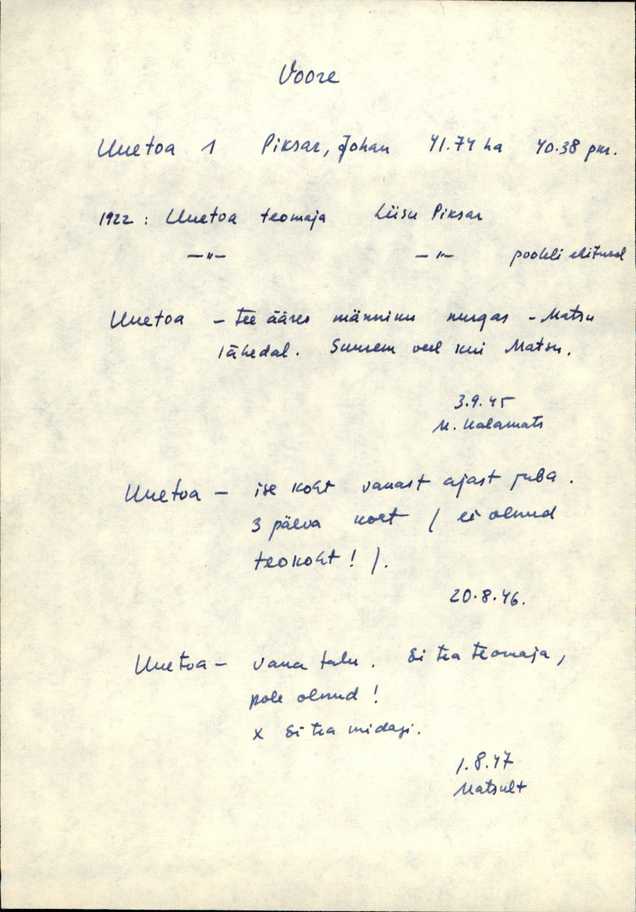 Voore
Uuetoa 1 Piksar, Johan 41.74 ha 40.38 pkr.
1922 : Uuetoa teomaja Liisu Piksar
—"— —"— pooleli ehitusel
Uuetoa – tee ääres männiku nurgas – Matsu
lähedal. Suurem veel kui Matsu.
3.9.45
M. Kalamats
Uuetoa – ise koht vanast ajast juba.
3 päeva koht ( ei olnud
teokoht! ).
20.8.46.
Uuetoa – vana talu. Ei tea teomaja,
pole olnud!
x Ei tea midagi.
1.8.47
Matsult